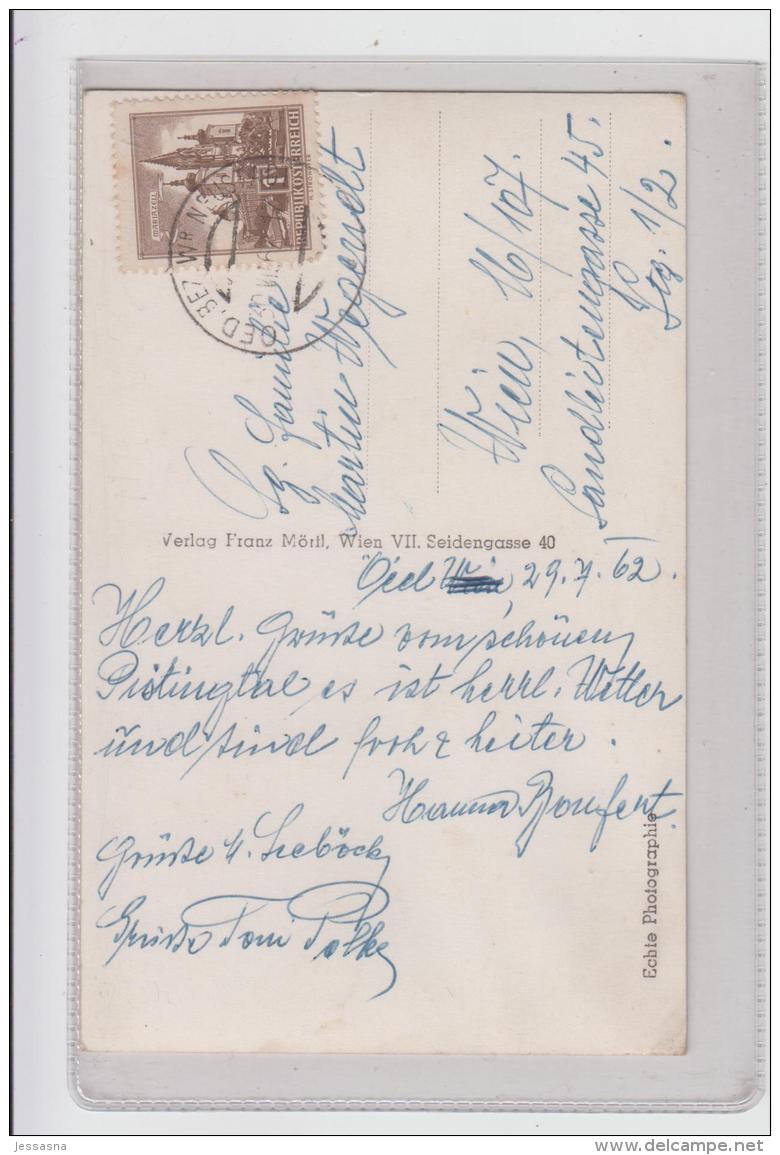 MARIAZELL
REPUBLIK ÖSTERREICH
OED, BEZ. WR. N
Familie
Martin Wegerndt
Wien, 16/107.
Sandleitengasse 45.
Stg. 1/2.
Verlag Franz Mörtl, Wien VII. Seidengasse 40
Oed 29.7.62.
Herzl. Grüsse vom schönen
Pistingtal es ist herrl. Wetter
und sind froh & heiter.
Hanna Bonfert.
Grüsse H. Seeböck
Grüsse Toni Pölke
Echte Photographie
jessasna
www.delcampe.net